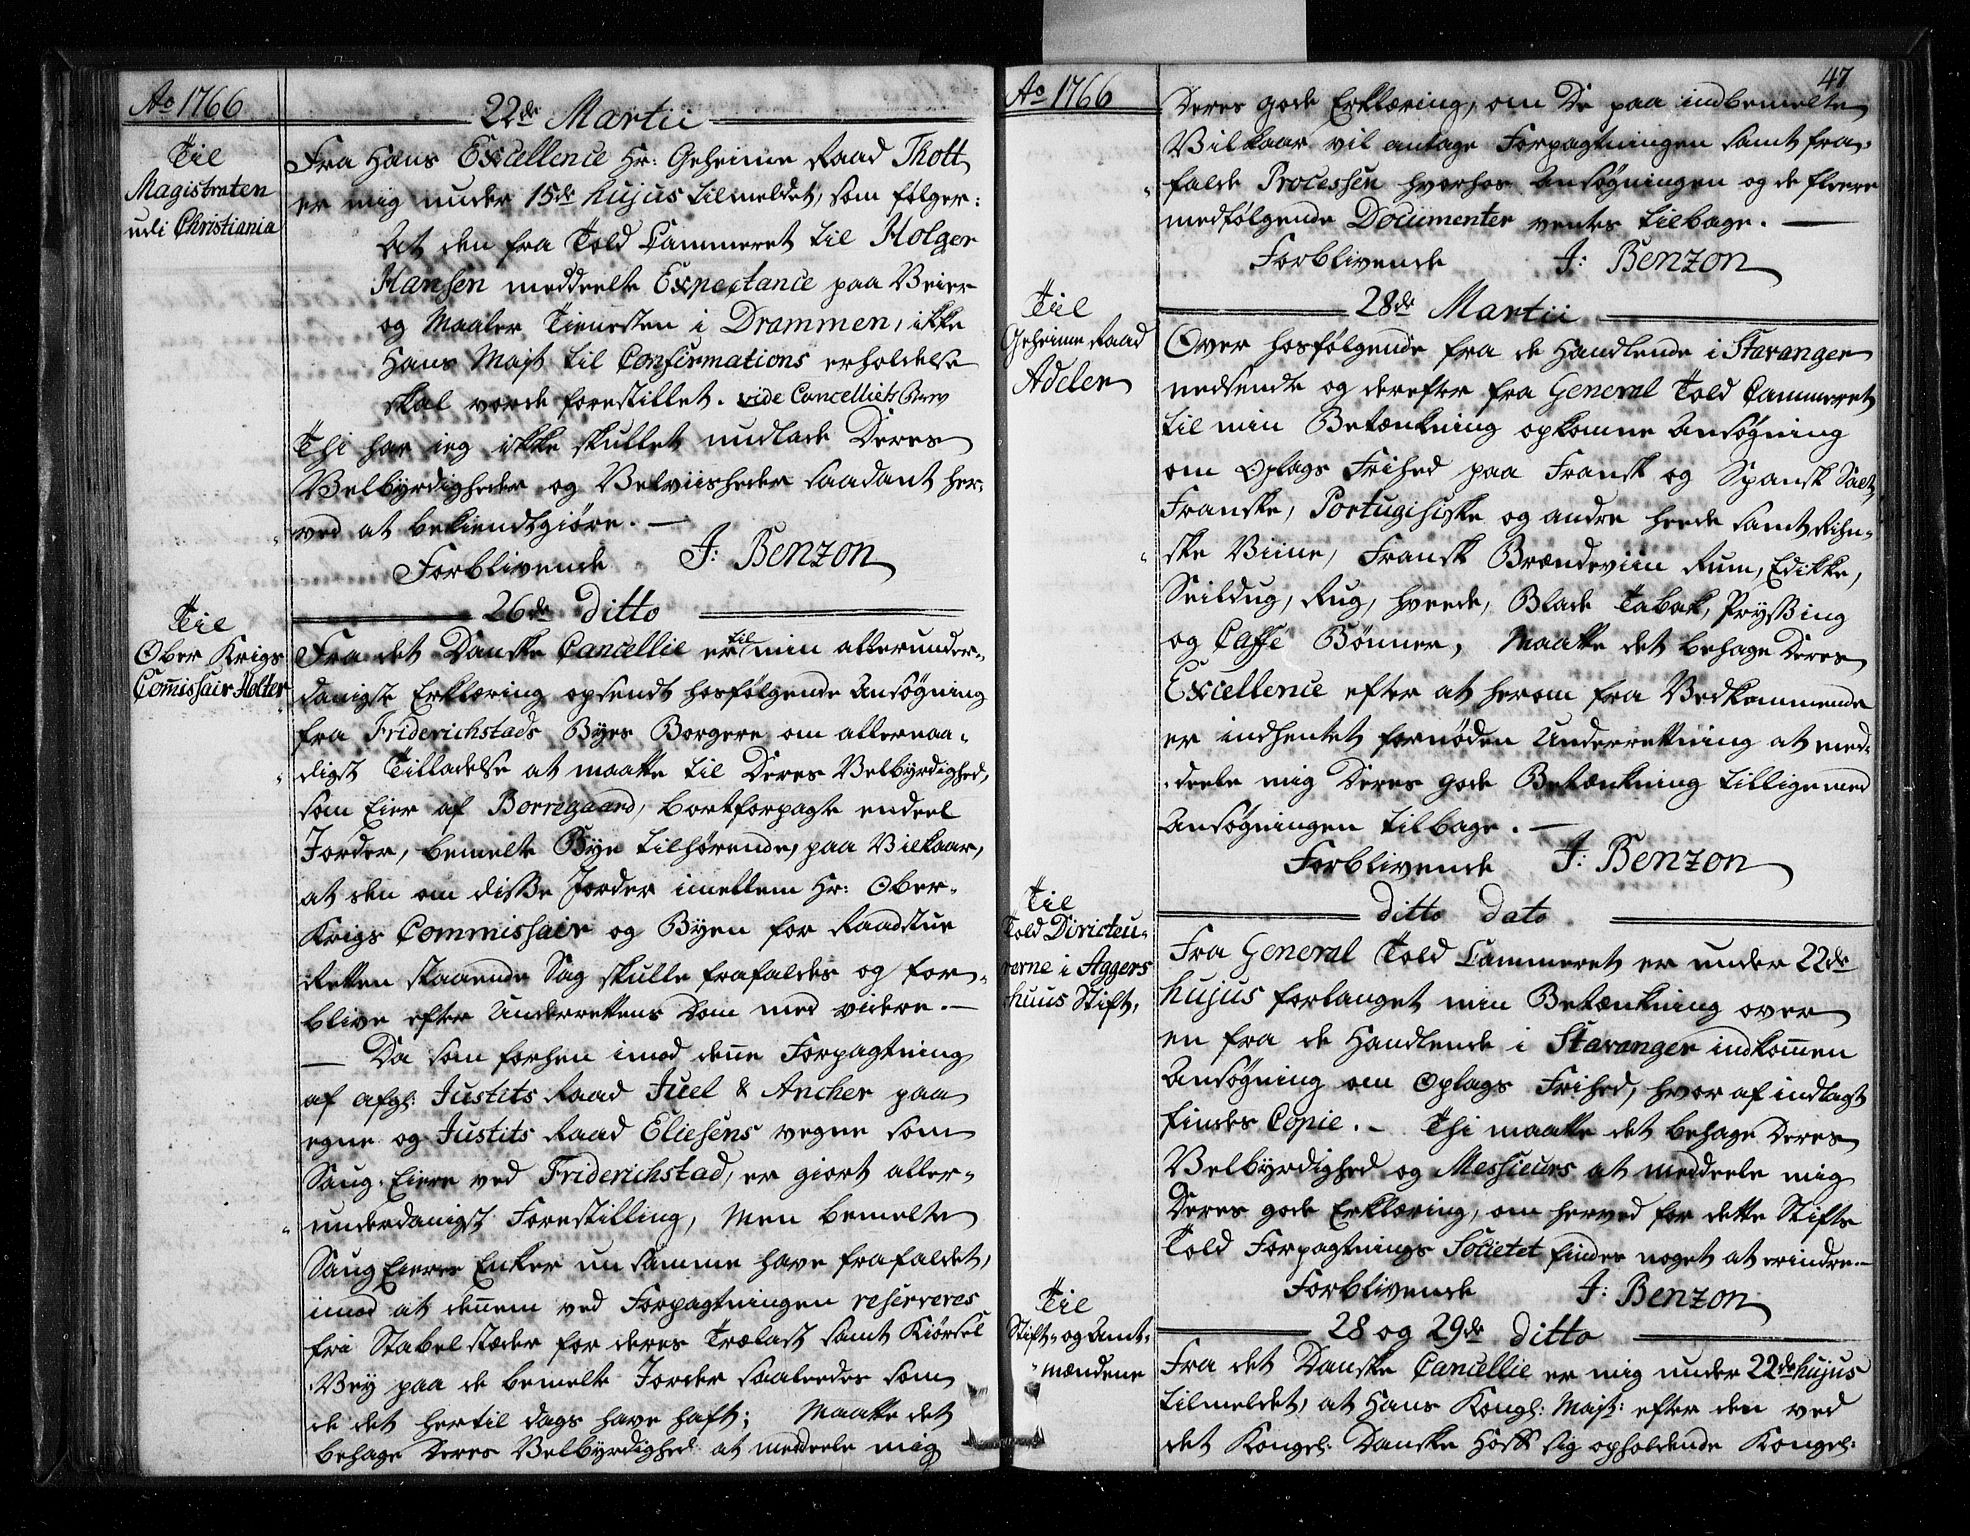 Ao 1766
22de Martii
Til
Magistraten
udi Christiania
Fra Hans Excellence Hr: Geheime Raad Thott
er mig under 15de hujus tilmeldet, som følger:
At den fra Told Cammeret til Holger
Hansen meddeelte Expectance paa Veier
og Maaler Tienesten i Drammen, ikke
Hans Majst til Confirmations erholdelse
skal vorde forestillet. vide Cancelliets Brev
Thi har ieg ikke skullet undlade Deres
Velbyrdigheder og Velviisheder saadant her-
ved at bekiendtgiøre. —
Forblivende J: Benzon
26de ditto
Til
Ober Krigs
Comissair Holter
Fra det Danske Cancellie er til min allerunder-
danigste Erklæring opsendt hosfølgende Ansøgning
fra Friderichstads Byes Borgere om allernaa-
digst Tilladelse at maatte til Deres Velbyrdighed,
som Eier af Borregaard, bortforpagte endeel
Jorder, bemelte Bye tilhørende, paa Vilkaar,
at den om disse Jorder imellem Hr: Ober-
Krigs Commissair og Byen for Raadstue
Retten staaende Sag skulle frafaldes og for-
blive efter Underrettens Dom med videre. —
— Da som forhen imod denne Forpagtning
af afgl: Justits Raad Juel & Ancher paa
egne og Justits Raad Eliesens vegne som
Saug-Eiere ved Friderichstad, er giort aller-
underdanigst Forestilling, Men bemelte
Saug Eieres Enker nu samme have frafaldet,
imod at dennem ved Forpagtningen reserveres
fri Stabel stæder for deres Trælast samt Kiørsel
Vey paa de bemelte Jorder saaledes som
de det hertil dags have haft; Maatte det
behage Deres Velbyrdighed at meddeele mig
Ao 1766
47
Deres gode Erklæring, om De paa indbemelte
Vilkaar vil antage Forpagtningen samt fra-
falde Processen hvorhos Ansøgningen og de fleere
medfølgende Documenter ventes tilbage. —
Forblivende J: Benzon
28de Martii
Til
Geheime Raad
Adeler
Over hosfølgende fra de Handlende i Stavanger
nedsendte og derefter fra General Told Cammeret
til min Betænkning opkomne Ansøgning
om Oplags Frihed paa Fransk og Spansk Salt,
Franske, Portugisiske og andre heede samt Rhin-
ske Viine, Fransk Brændeviin Rum, Edikke,
Seildug, Rug, Hvede, Blade Tabak, Pryssing
og Caffe Bønner, Maatte det behage Deres
Excellence efter at herom fra Vedkommende
er indhentet fornøden Underretning at med-
deele mig Deres gode Betænkning tillige med
Ansøgningen tilbage. —
Forblivende J: Benzon
ditto dato
Til
Told Directeu-
rerne i Aggers
huus Stift,
Fra General Told Cammeret er under 22de
hujus forlanget min Betænkning over
en fra de Handlende i Stavanger indkommen
Ansøgning om Oplags Frihed, hvor af indlagt
findes Copie. — Thi maatte det behage Deres
Velbyrdighed og Messieurs at meddeele mig
Deres gode Erklæring, om herved for dette Stifts
Told Forpagtnings Societet findes noget at erindre. —
Forblivende J: Benzon
28 og 29de ditto
Til
Stift- og Amt-
mændene
Fra det Danske Cancellie er mig under 22de hujus
tilmeldet, at Hans Kongl: Majst: efter den ved
det Kongel: Danske Hoff sig opholdende Kongel: